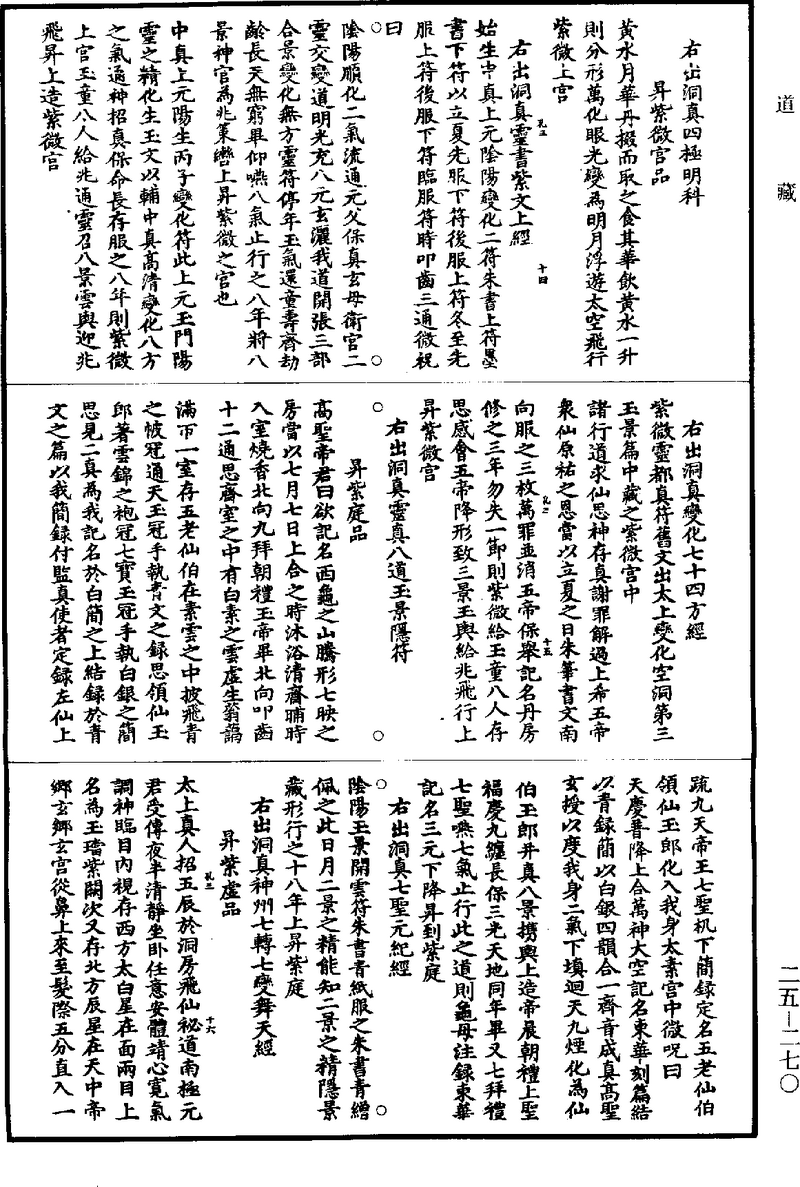 道藏
右出洞真四極明科
昇紫微宮品
黃水月華丹掇而取之食其華飲黃水一升
則分形萬化眼光變為明月浮遊太空飛行
紫微上宮
右出洞真靈書紫文上經
孔三
十四
始生中真上元陰陽變化二符朱書上符墨
書下符以立夏先服下符後服上符冬至先
服上符後服下符臨服符時叩齒三通微祝
曰
陰陽順化二氣流通元父保真玄母衛宮二
靈交變道明光充八元玄灑我道開張三部
合景變化無方靈符停年玉氣還童壽齊劫
齡長天無窮畢仰嚥八氣止行之八年將八
景神官為兆策轡上昇紫微之宮也
中真上元陽生丙子變化符此上元玉門陽
靈之精化生玉文以輔中真高清變化八方
之氣通神招真保命長存服之八年則紫微
上宮玉童八人給兆通靈召八景雲輿迎兆
飛昇上造紫微宮
右出洞真變化七十四方經
紫微靈都真符舊文出太上變化空洞第三
玉景篇中藏之紫微宮中
諸行道求仙思神存真謝罪解過上希五帝
眾仙原祐之恩當以立夏之日朱筆書文南
孔二
十五
向服之三枚萬罪並消五帝保舉記名丹房
修之三年勿失一節則紫微給玉童八人存
思感會五帝降形致三景玉輿給兆飛行上
昇紫微宮
右出洞真靈真八道玉景隱符
昇紫庭品
高聖帝君曰欲記名西龜之山騰形七映之
房當以七月七日上合之時沐浴清齋晡時
入室燒香北向九拜朝禮玉帝畢北向叩齒
十二通思齋室之中有白素之雲虛生蓊謁
滿帀一室存五老仙伯在素雲之中披飛青
之帔冠通天玉冠手執青文之錄思領仙玉
郎著雲錦之袍冠七寶玉冠手執白銀之簡
思見二真為我記名於白簡之上結錄於青
文之篇以我簡錄付監真使者定錄左仙上
疏九天帝王七聖机下簡錄定名五老仙伯
領仙玉郎化入我身太素宮中微呪曰
天慶普降上合萬神大空記名東華刻篇結
以青錄簡以白銀四韻合一齊音成真高聖
玄授以度我身二氣下填迴天九煙化為仙
伯玉郎并真八景携輿上造帝晨朝禮上聖
福慶九纏長保三光天地同年畢又七拜禮
七聖嚥七氣止行此之道則龜母注錄東華
記名三元下降昇到紫庭
右出洞真七聖元紀經
陰陽玉景開雲符朱書青紙服之朱書青繒
佩之此日月二景之精能知二景之精隱景
藏形行之十八年上昇紫庭
右出洞真神州七轉七變舞天經
昇紫虛品
孔三
十六
太上真人招五辰於洞房飛仙秘道南極元
君受傳夜半清靜坐卧任意安體靖心寬氣
調神臨目內視存西方太白星在面兩目上
名為玉璫紫闕次又存北方辰星在天中帝
鄉玄鄉玄宮從鼻上來至髮際五分直入一
二五—二七〇